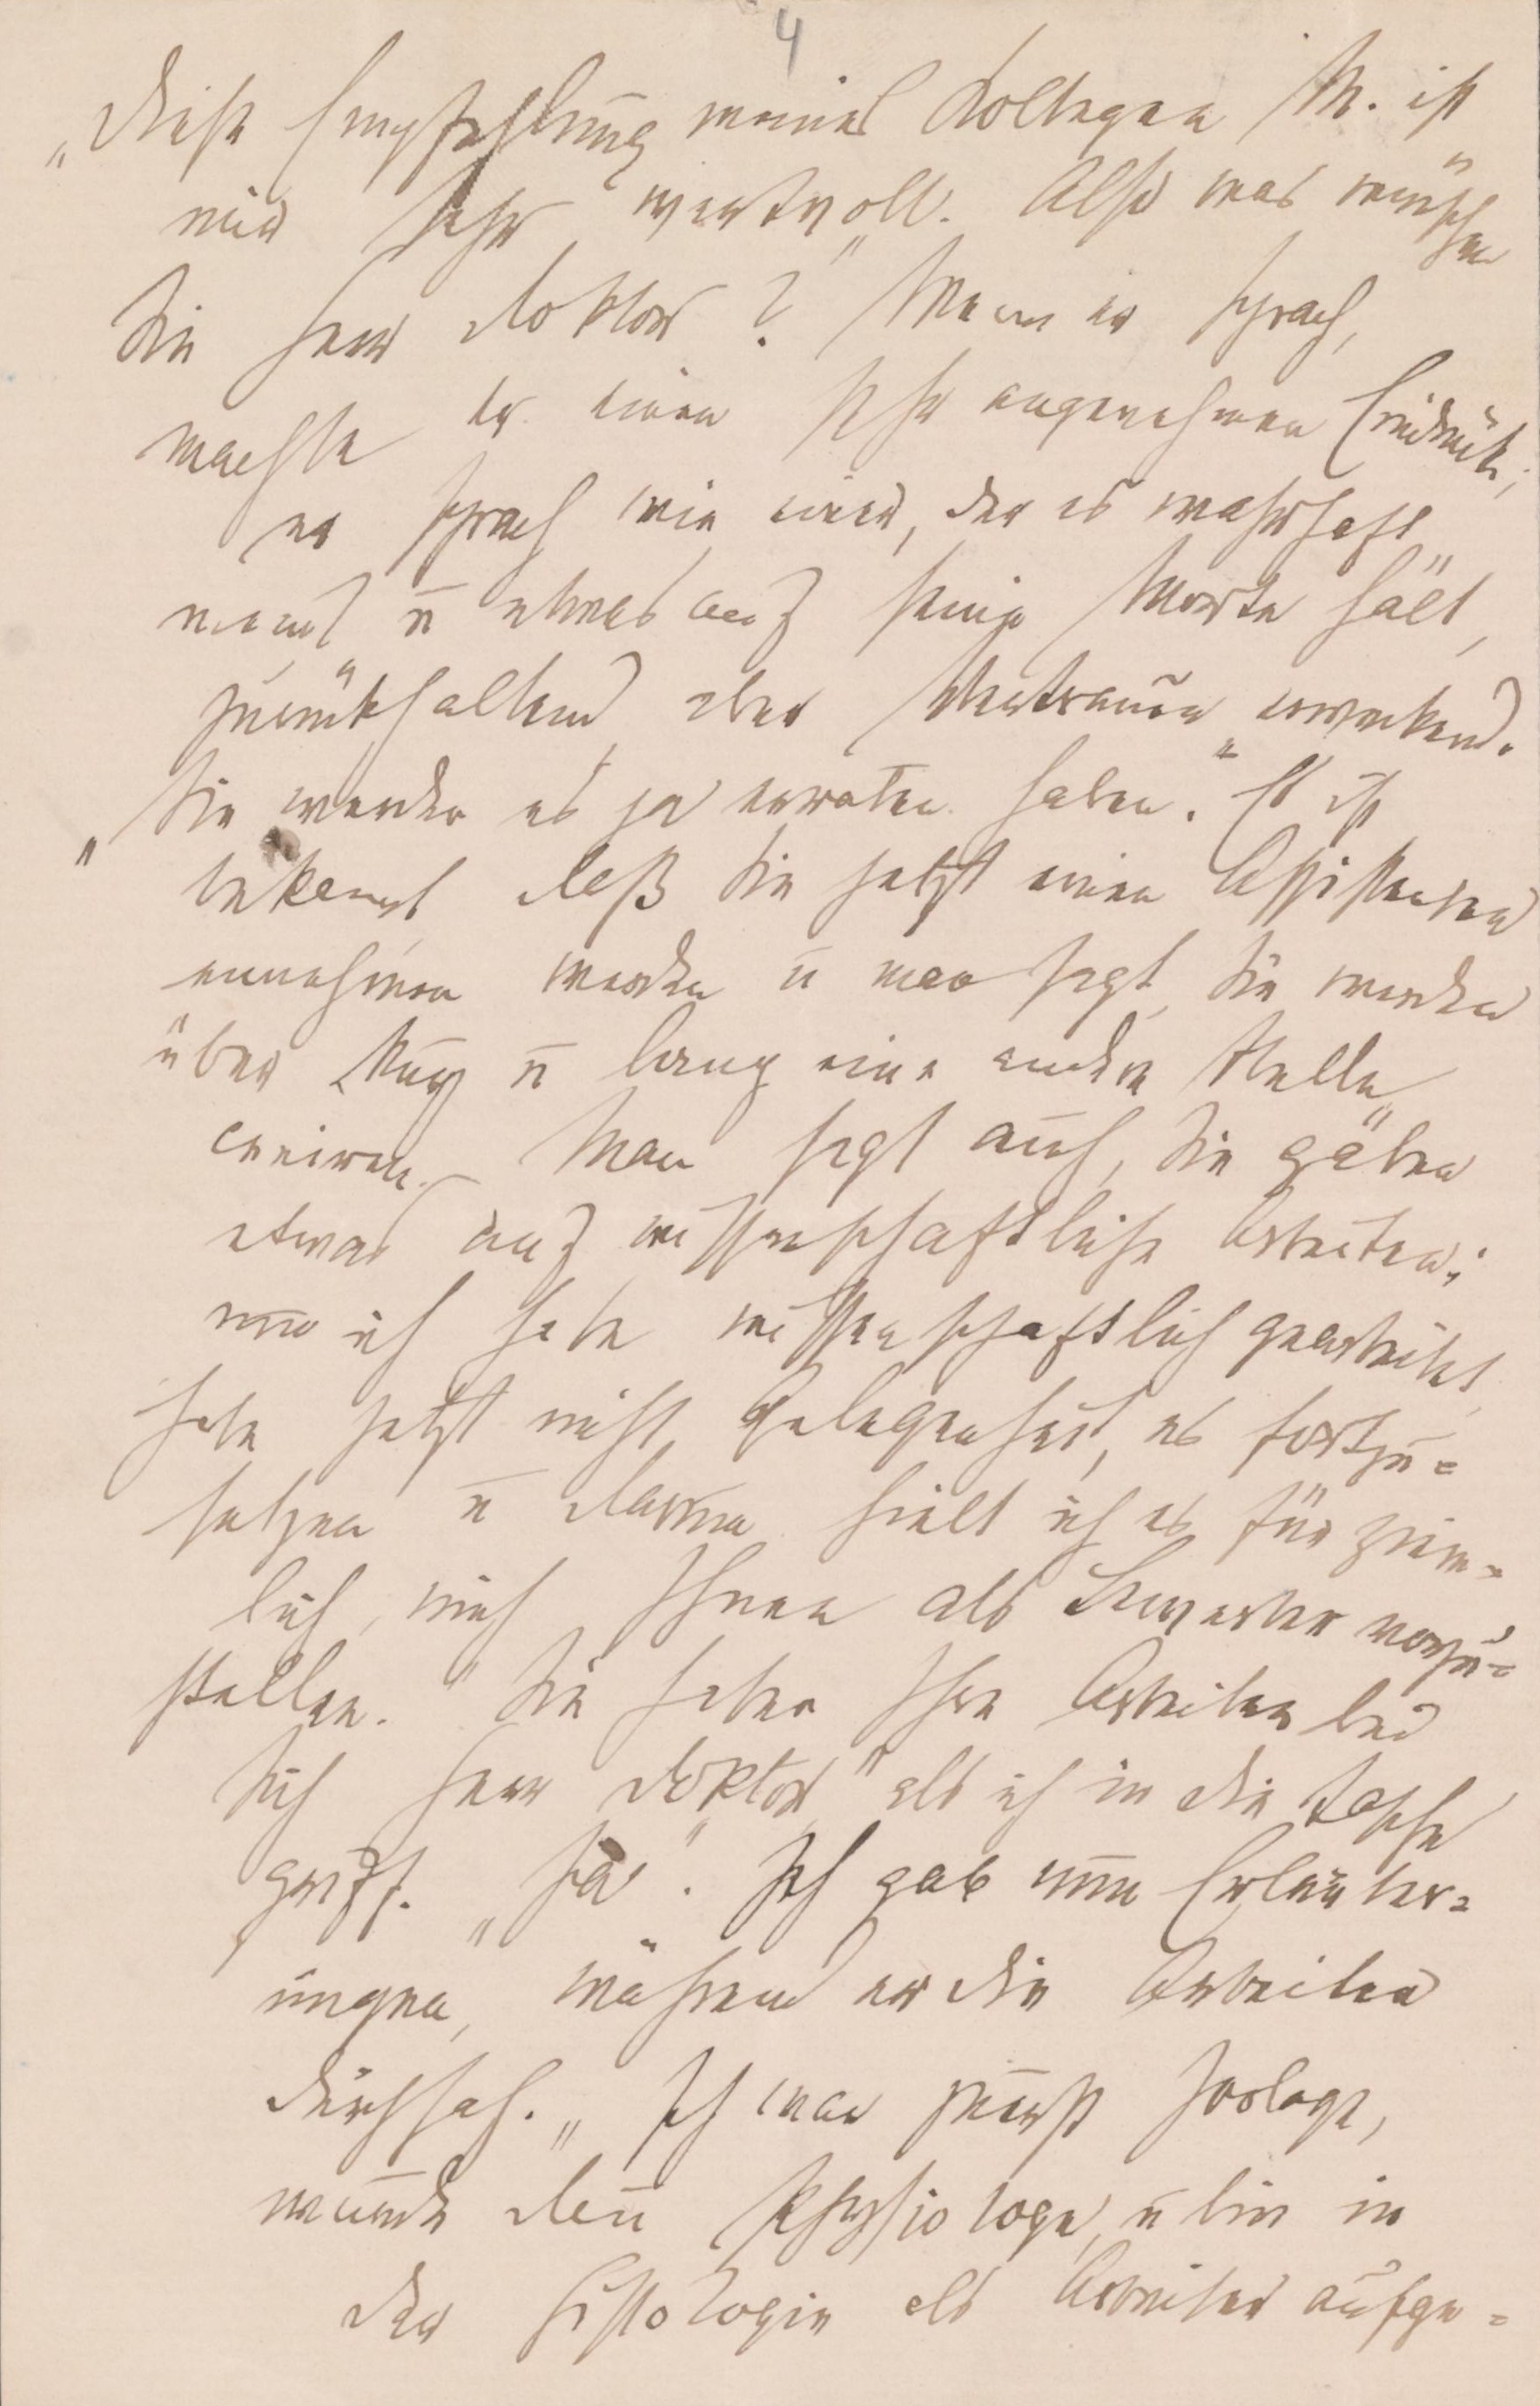 4
„Diese Empfehlung meines Kollegen M. ist
mir sehr wertvoll. Also was wünschen
Sie Herr Doktor? Wenn er sprach,
machte er einen sehr angenehmen Eindruck;
er sprach wie einer, der es wahrhaft
meint u etwas auf seine Worte hält,
zurückhaltend aber Vertrauen erweckend.
„Sie werden es ja erraten haben. Es ist
bekannt daß Sie jetzt einen Assistenten
annehmen werden u man sagt, Sie werden
über kurz u lang eine andere Stelle
creiren. Man sagt auch, Sie gäben
etwas auf wissenschaftliche Arbeiten;
nun ich habe wissenschaftlich gearbeitet,
habe jetzt nicht Gelegenheit, es fortzu=
setzen u darum hielt ich es für ziem=
lich, mich Ihnen als Bewerber vorzu=
stellen." Sie haben Ihre Arbeiten bei
Sich Herr Doktor" als ich in die Tasche
griff. „Ja". Ich gab nun Erläuter=
ungen, während er die Arbeiten
durchsah. „Ich war zuerst Zoologe,
wurde dann Physiologe, u bin in
der Histologie als Arbeiter aufge=